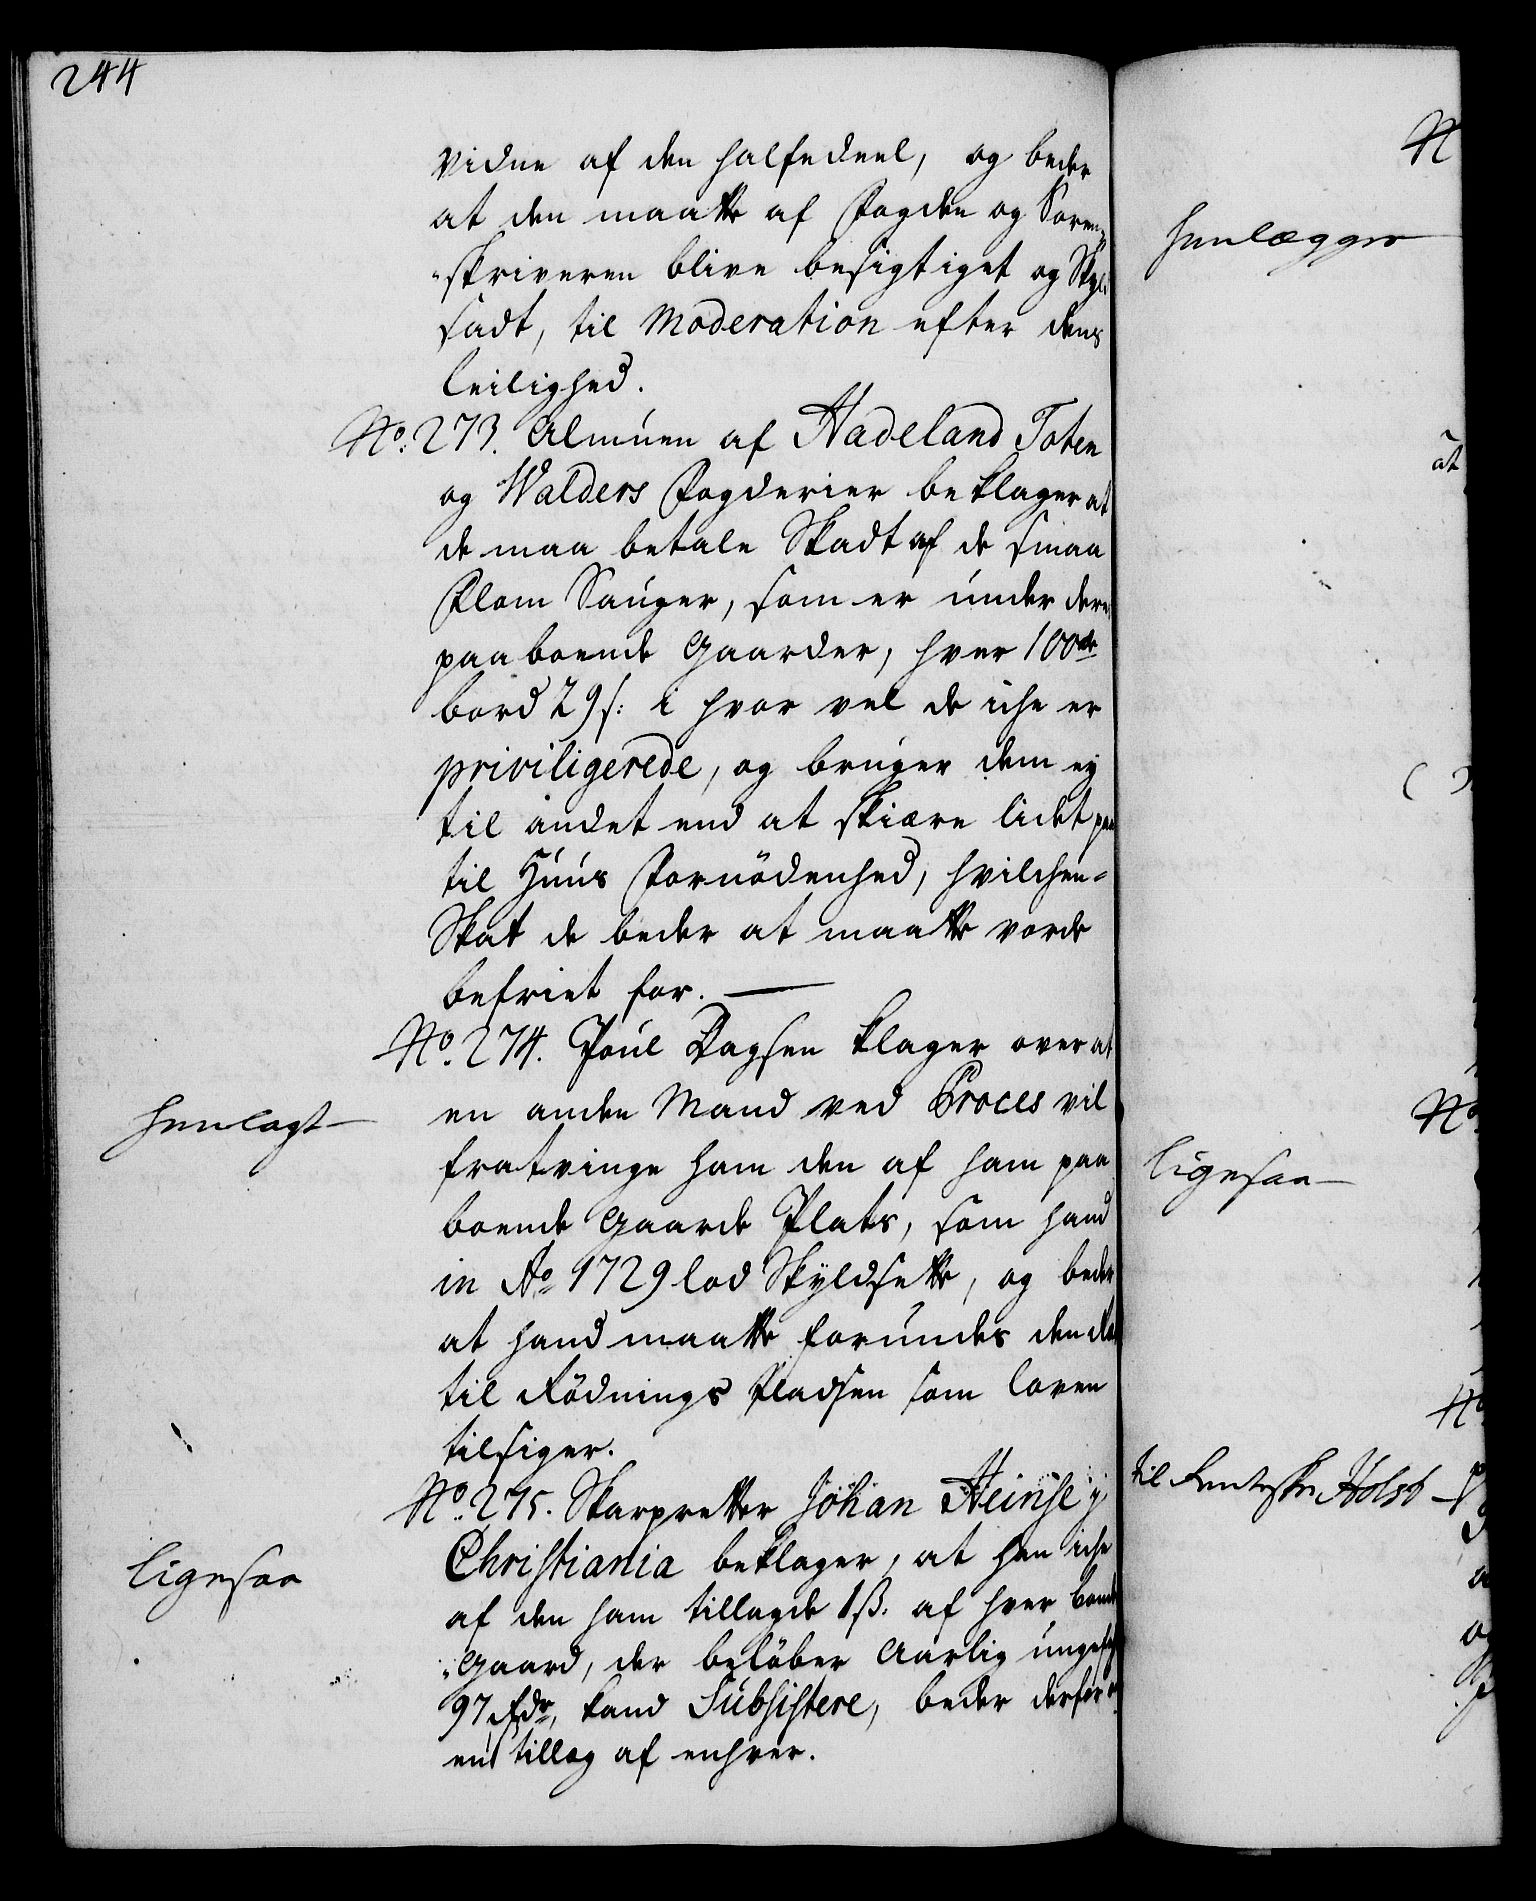 244
vidne af den halfedeel, og beder
at den maatte af Fogden og Soren,,
"skriveren blive besigtiget og Skyld
sadt, til Moderation efter dens
leilighed.
No. 273. Almuen af Hadeland Toten
og Walders Fogderier beklager at
de maa betale Skadt af de smaa
Flom Sauger, som er under deres
paaboende Gaarder, hver 100de
bord 29 s: i hvor vel de iche er
priviligerede, og bruger dem ey
til andet end at skiære lidet paa
til Huus Fornödenhed, hvilchen-
Skat de beder at maatte vorde
befriet for. —
No. 274. Poul Dagsen klager over at
henlagt
en anden Mand ved Proces vil
fratvinge ham den af ham paa
boende Gaarde Plats, som hand
in Ao 1729 lod Skyldsette, og beder
at hand maatte forundes den
til Rödnings Pladsen som loven
tilsiger.
No. 275. Skarpretter Johan Heinse j
ligesaa
Christiania beklager, at han iche
af den ham tillagde 1 ß. af hver bonde
"Gaard, der belöber Aarlig ungefehr
97 Rdr, kand Subsistere, beder derfor om
en tillæg af enhver.
henlægges
ligesaa
til Renteskr. Holst